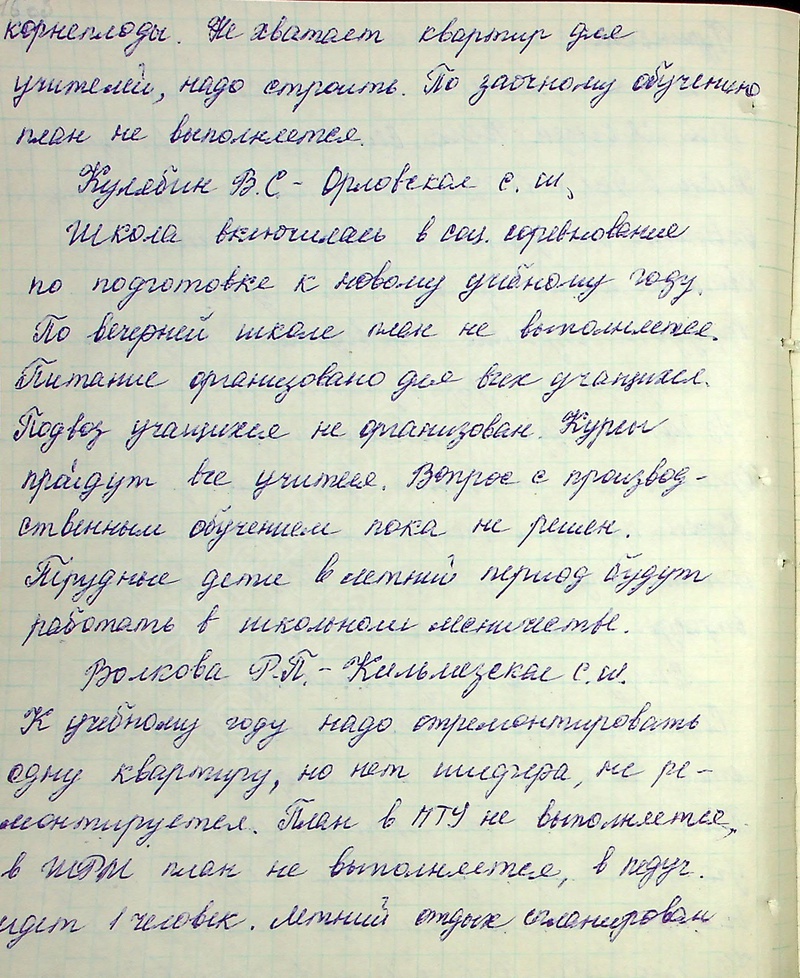 корнеплоды. Не хватает квартир для
учителей, надо строить. По заочному обучению
план не выполняется.
Кулябин В.С. - Орловская с. ш.
Школа включилась в соц. соревнование
по подготовке к новому учебному году.
По вечерней школе план не выполняется.
Питание организовано для всех учащихся.
Подвоз учащихся не организован. Курсы
пройдут все учителя. Вопрос с производ-
ственным обучением пока не решен.
Трудные дети в летний период будут
работать в школьном лесничестве.
Волкова Р.П. - Кильмезская с. ш.
К учебному году надо отремонтировать
одну квартиру, но нет шифера, не ре-
монтируется. План в ПТУ не выполняется,
в ШРМ план не выполняется, в педуч.
идет 1 человек. Летний отдых спланирован